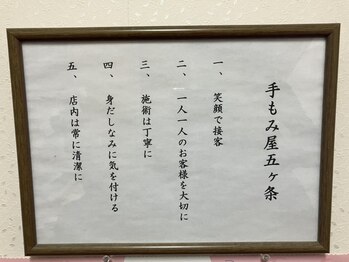 手もみ屋五ヶ条
一、笑顔で接客
二、一人一人のお客様を大切に
三、施術は丁寧に
四、身だしなみに気を付ける
五、店内は常に清潔に